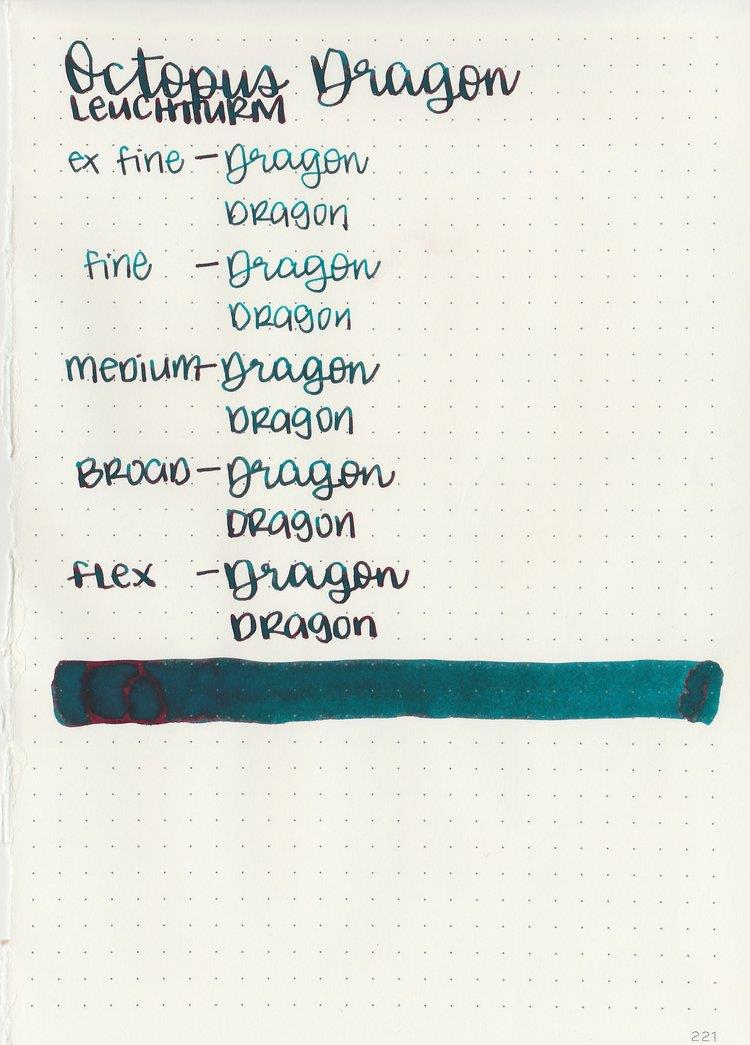 Octopus Dragon
LEUCHTTURM
ex fine - Dragon
DRagon
fine - Dragon
DRagon
meDium - Dragon
DRagon
BROaD - Dragon
DRagon
fLex - Dragon
DRagon
221